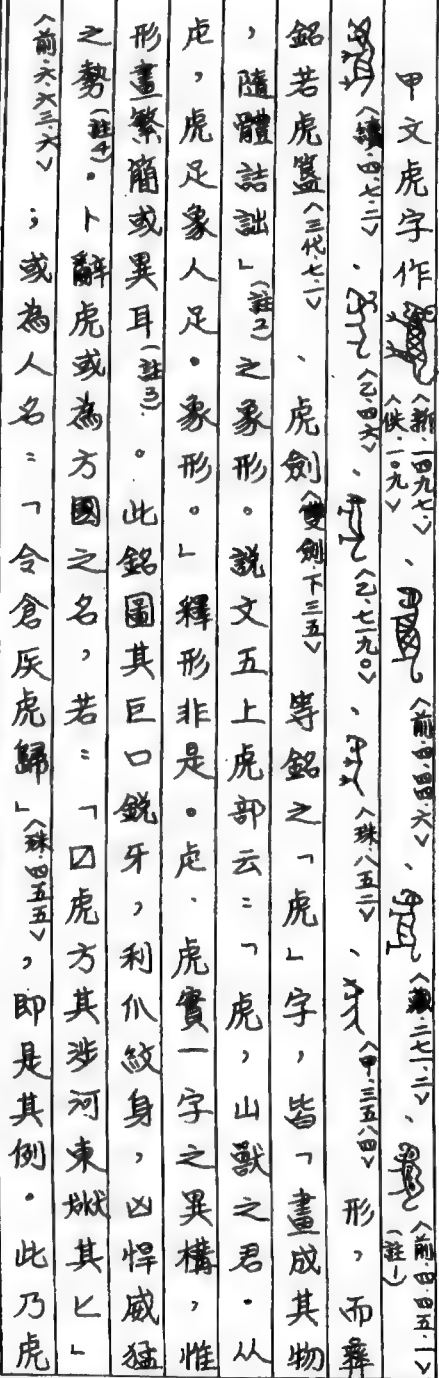 甲文虎字作〈新·一四九七、佚·一〇九〉、〈前·四·四四·六〉、〈藏·二七一·二〉、〈前·四·四五·一〉(註1)
〈續·四·七·二〉、〈乙·四六〉、〈乙·七一九〇〉、〈珠·八五二〉、〈甲·三五八四〉形,而彝
銘若虎簋〈三代·七·一〉、虎劍〈雙劍·下三五〉等銘之「虎」字,皆「畫成其物
,隨體詰詘」(註2)之象形。說文五上虎部云:「虎,山獸之君。从
虍,虎足象人足。象形。」釋形非是。虍.虎實一字之異構,惟
形畫繁簡或異耳(註3)。此銘圖其巨口銳牙,利爪紋身,凶悍威猛
之勢(註4)。卜辭虎或為方國之名,若:「囗虎方其涉河東㹜其匕」
〈前·六·六三·六〉;或為人名:「令倉侯虎歸」〈珠·四五五〉,即是其例。此乃虎